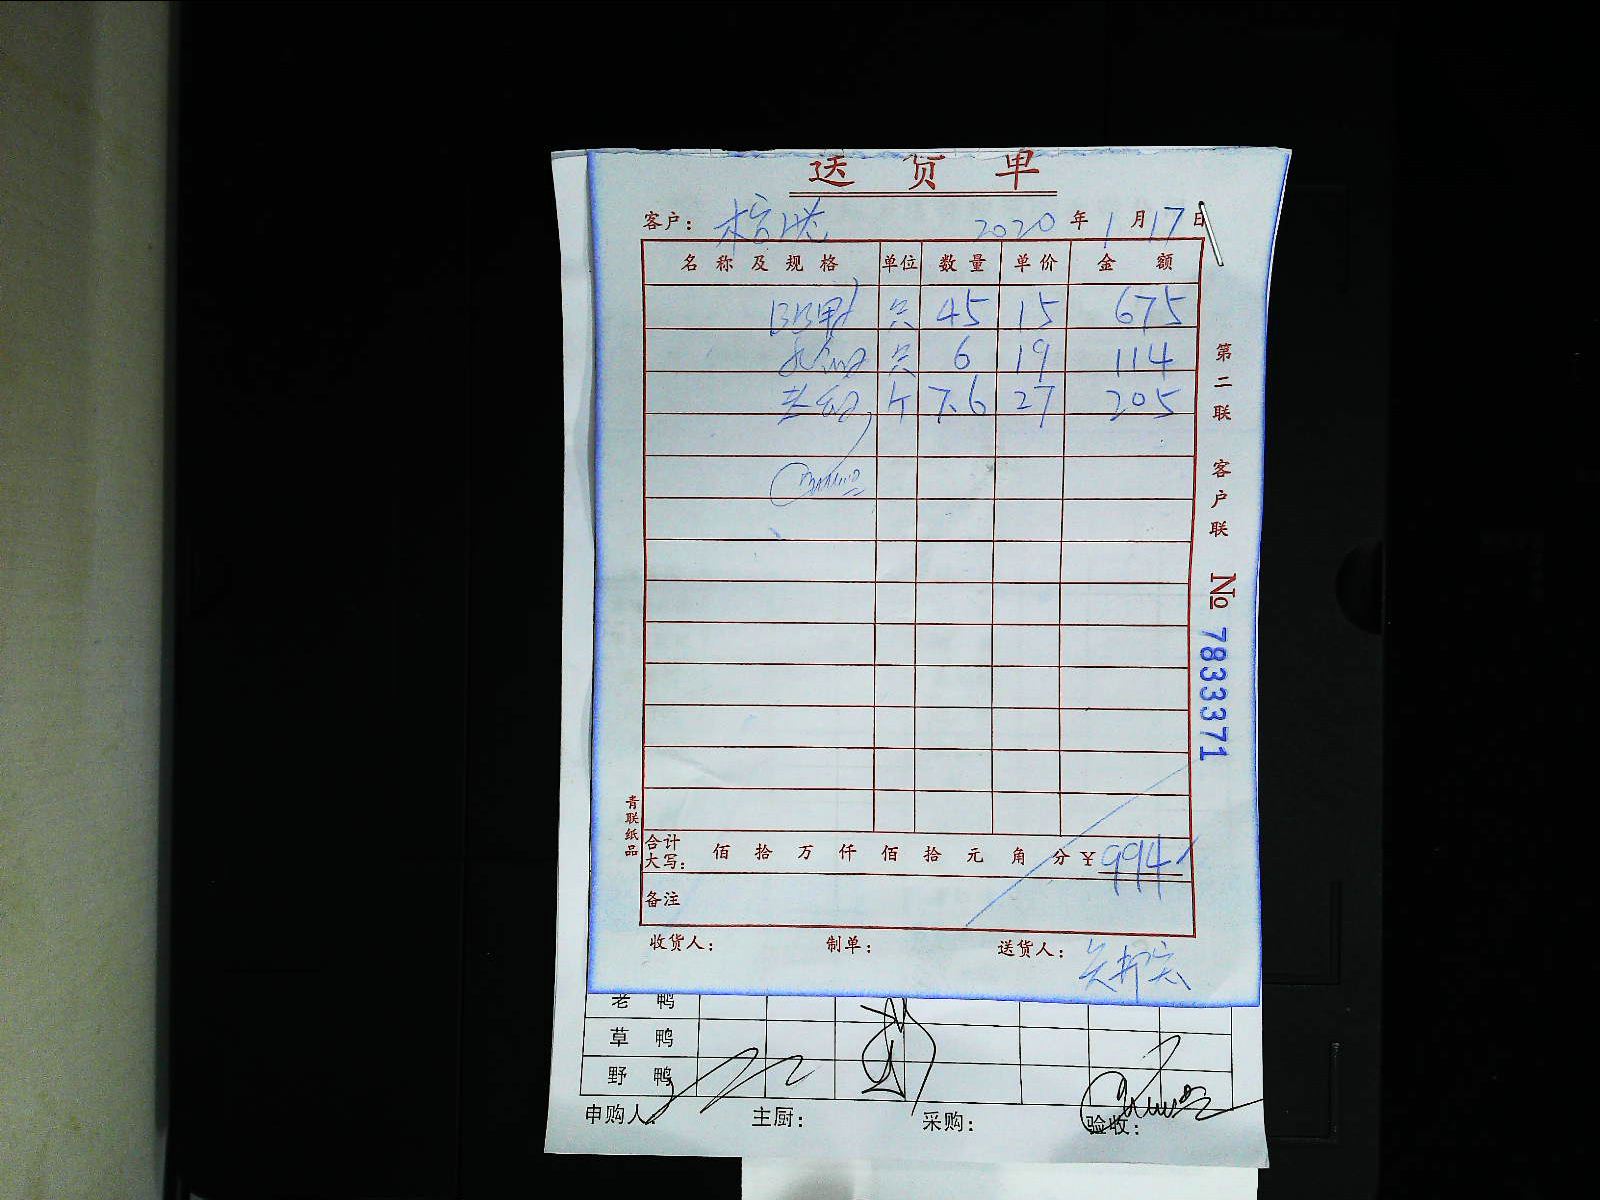 送货单
客户： 2020年1月17日
名称及规格 单位 数量 单价 金额
只 45 15 675
只 6 19 114
7.6 27 205
合计大写： 佰 拾 万 仟 佰 拾 元 角 分 ¥994
备注
收货人： 制单： 送货人：
第二联 客户联 № 7833371
青联纸品
老鸭
草鸭
野鸭
申购人 主厨： 采购： 验收：